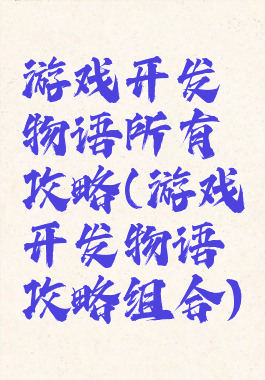 游戏开发
物语所有
攻略(游戏
开发物语
攻略组合)